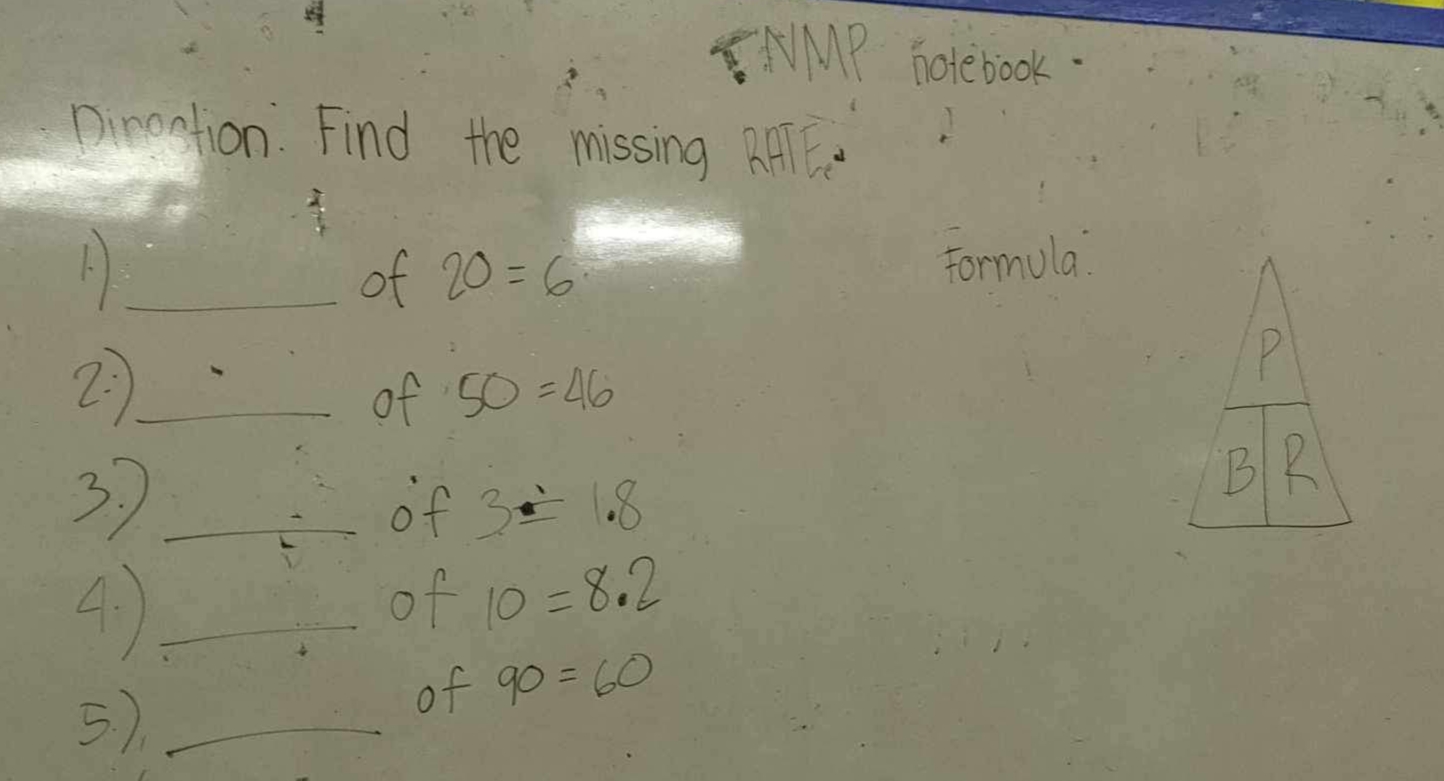 INMP notebook
Direction: Find the missing RATE.
1.) ______ of 20 = 6
2.) ______ of 50 = 46
3.) ______ of 3 = 1.8
4.) ______ of 10 = 8.2
5.) ______ of 90 = 60
Formula:
P
B R